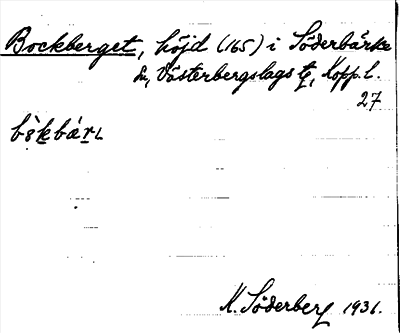 Bockberget, höjd (165) i Söderbärke
sn, Västerbergslags tg, Kopp. l.
27
M. Söderberg 1931.